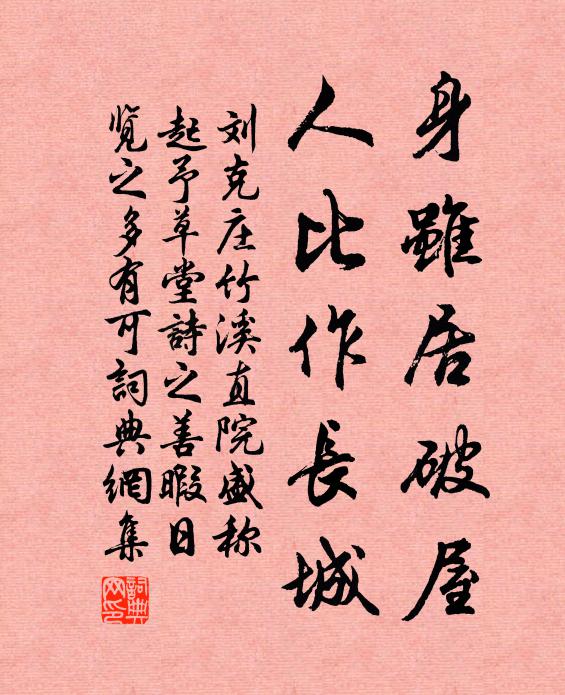 身雖居破屋
人比作長城
刘克庄竹溪直院盛称
起予草堂詩之善暇日
览之多有可詞典網集
詞典
网印